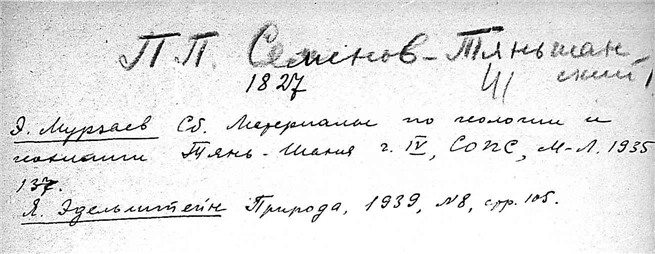 П П. Семенов-Тяньшан-
ский
1827
Э. Мурзаев Сб. Материалы по геологии и
геохимии Тянь-Шаня ч. IV, СОПС, М-Л. 1935
137.
Я. Эдельштейн Природа, 1939, №8, стр. 105.